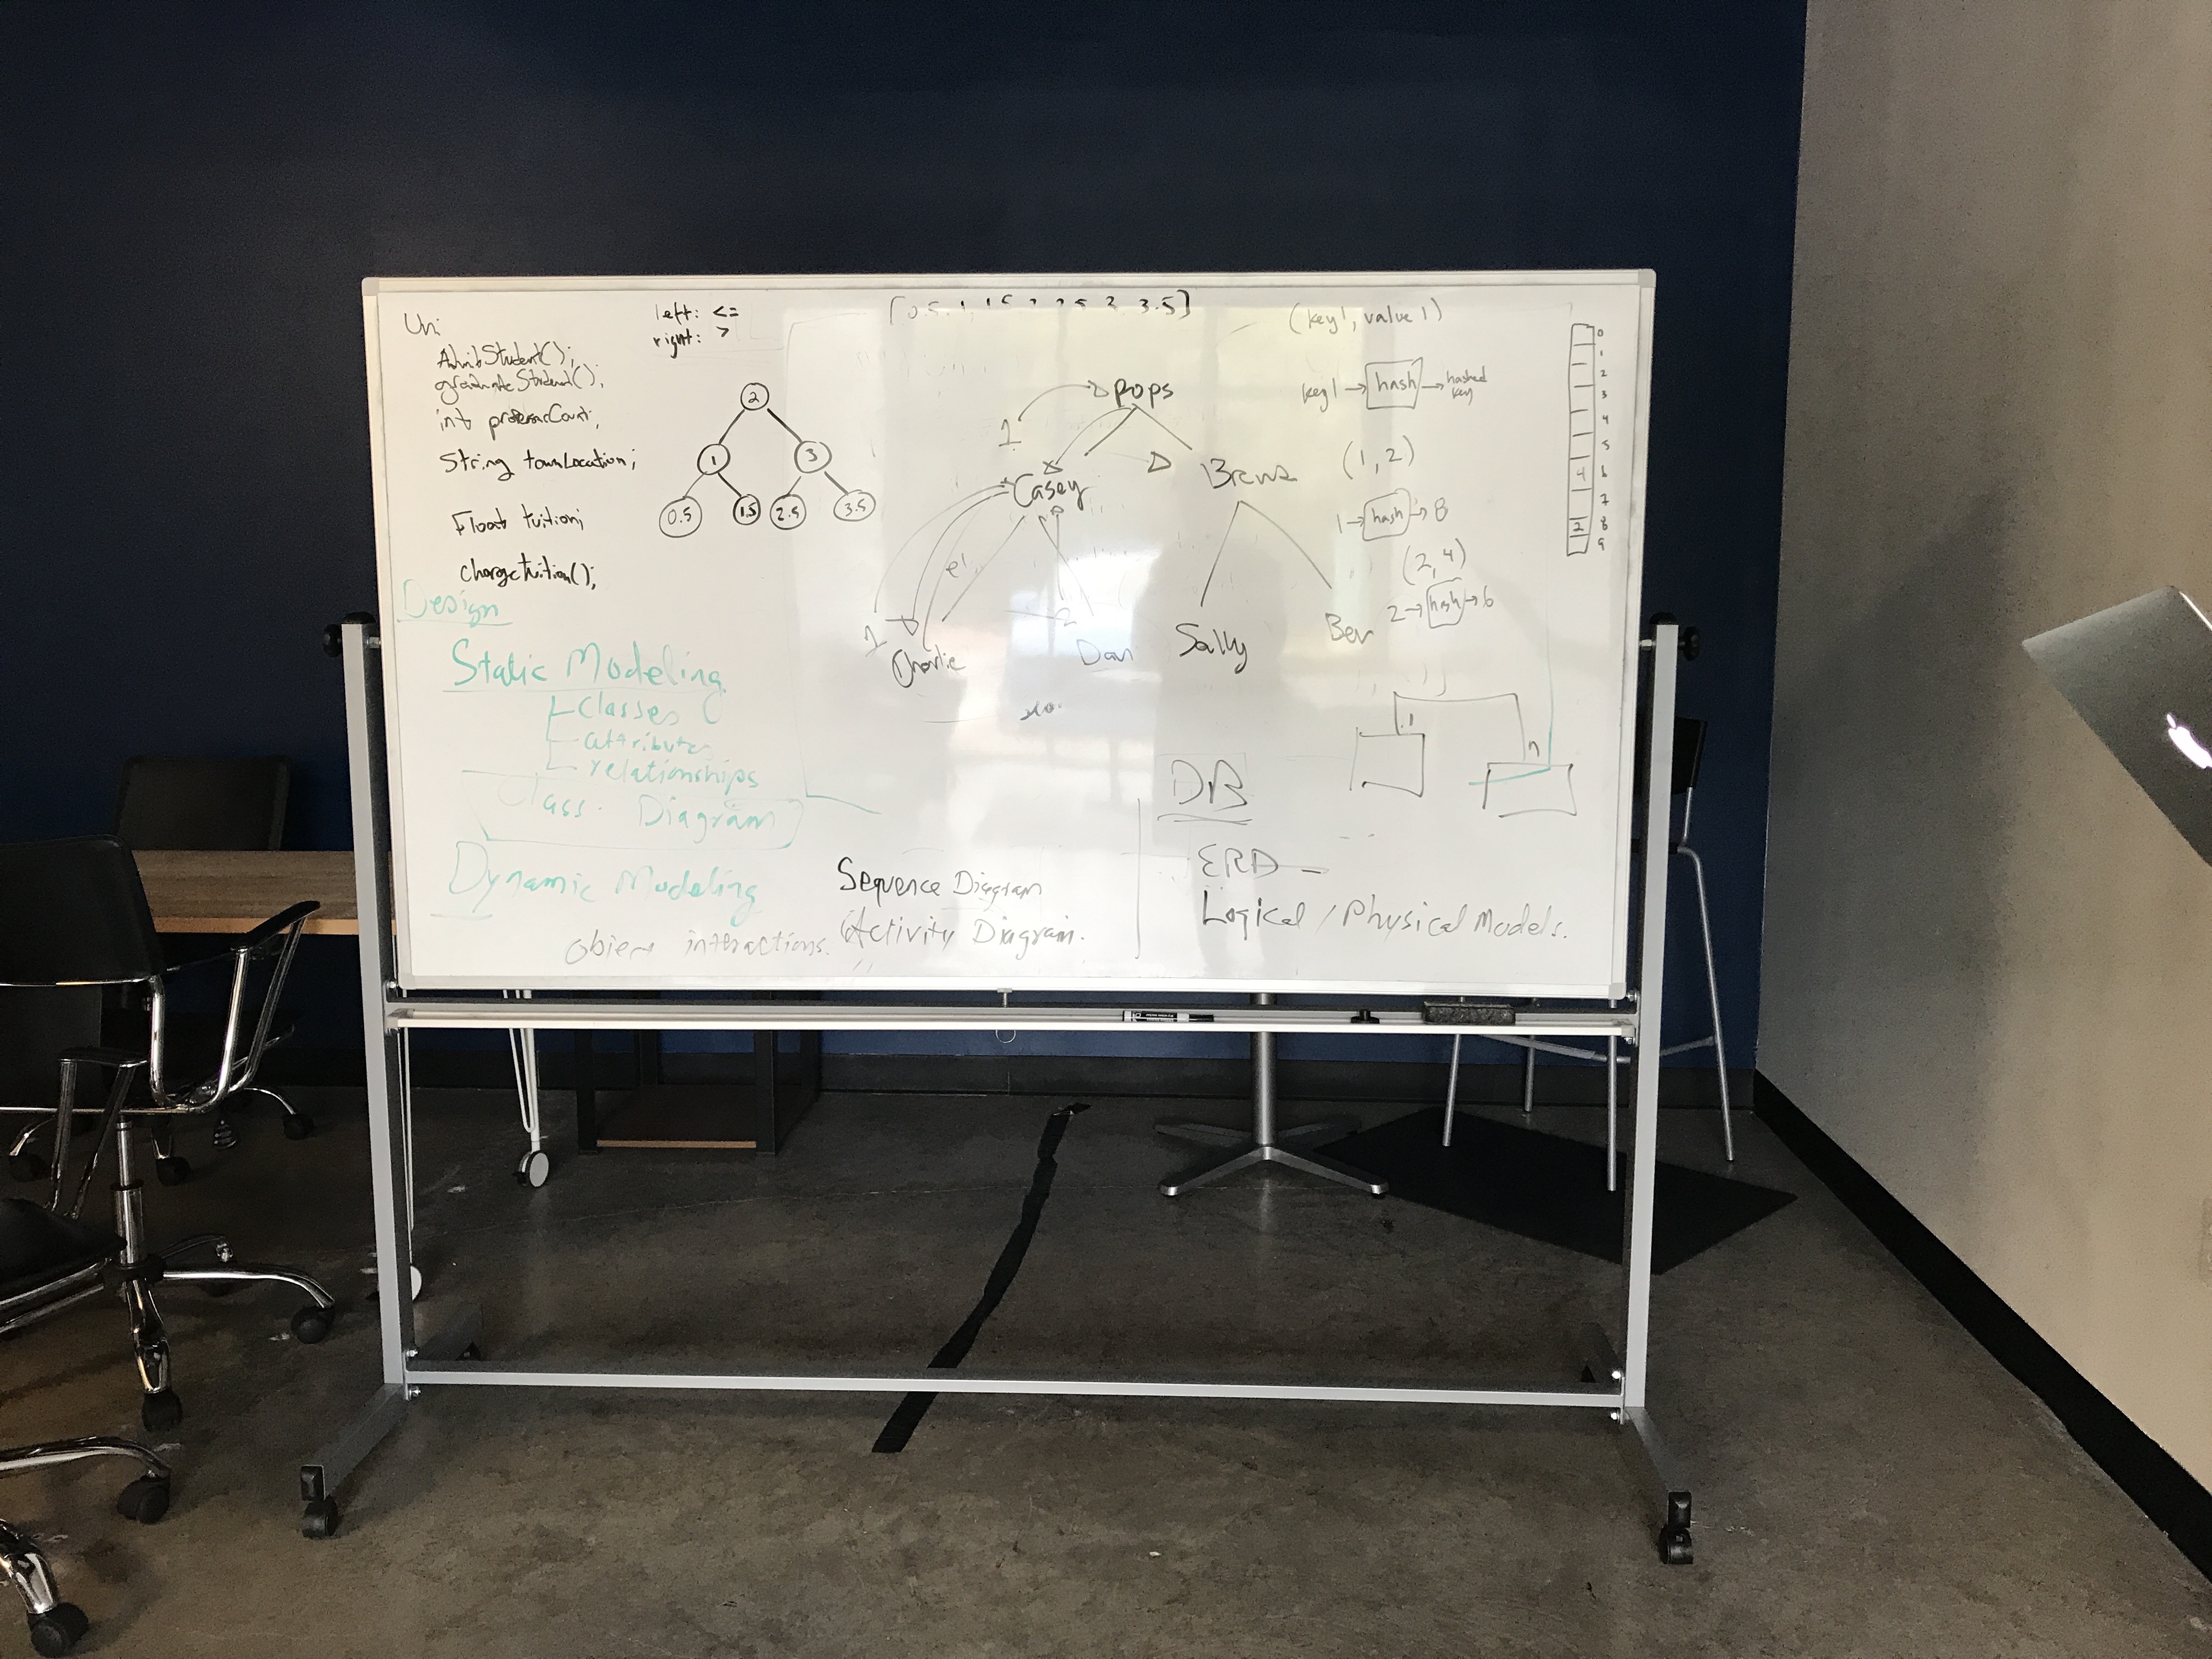 Uni
AdmitStudent();
graduateStudent();
int professorCount;
String townLocation;
Float tuition;
chargeTuition();
left: <=
right: >
2
1 3
0.5 1.5 2.5 3.5
[0.5, 1, 1.5 2 2.5 3 3.5]
Pops
1
Casey
e1
1
2
Charlie
Dan
Sally
Ben
(key1, value 1)
key1 → hash → hashed key
(1, 2)
1 → hash → 8
(2, 4)
2 → hash → 6
0
1
2
3
4
5
4 6
7
2 8
9
1
n
Design
Static Modeling
classes
attributes
relationships
Class Diagram
Dynamic Modeling
Object interactions.
Sequence Diagram
Activity Diagram.
DB
ERD -
Logical / Physical Models.